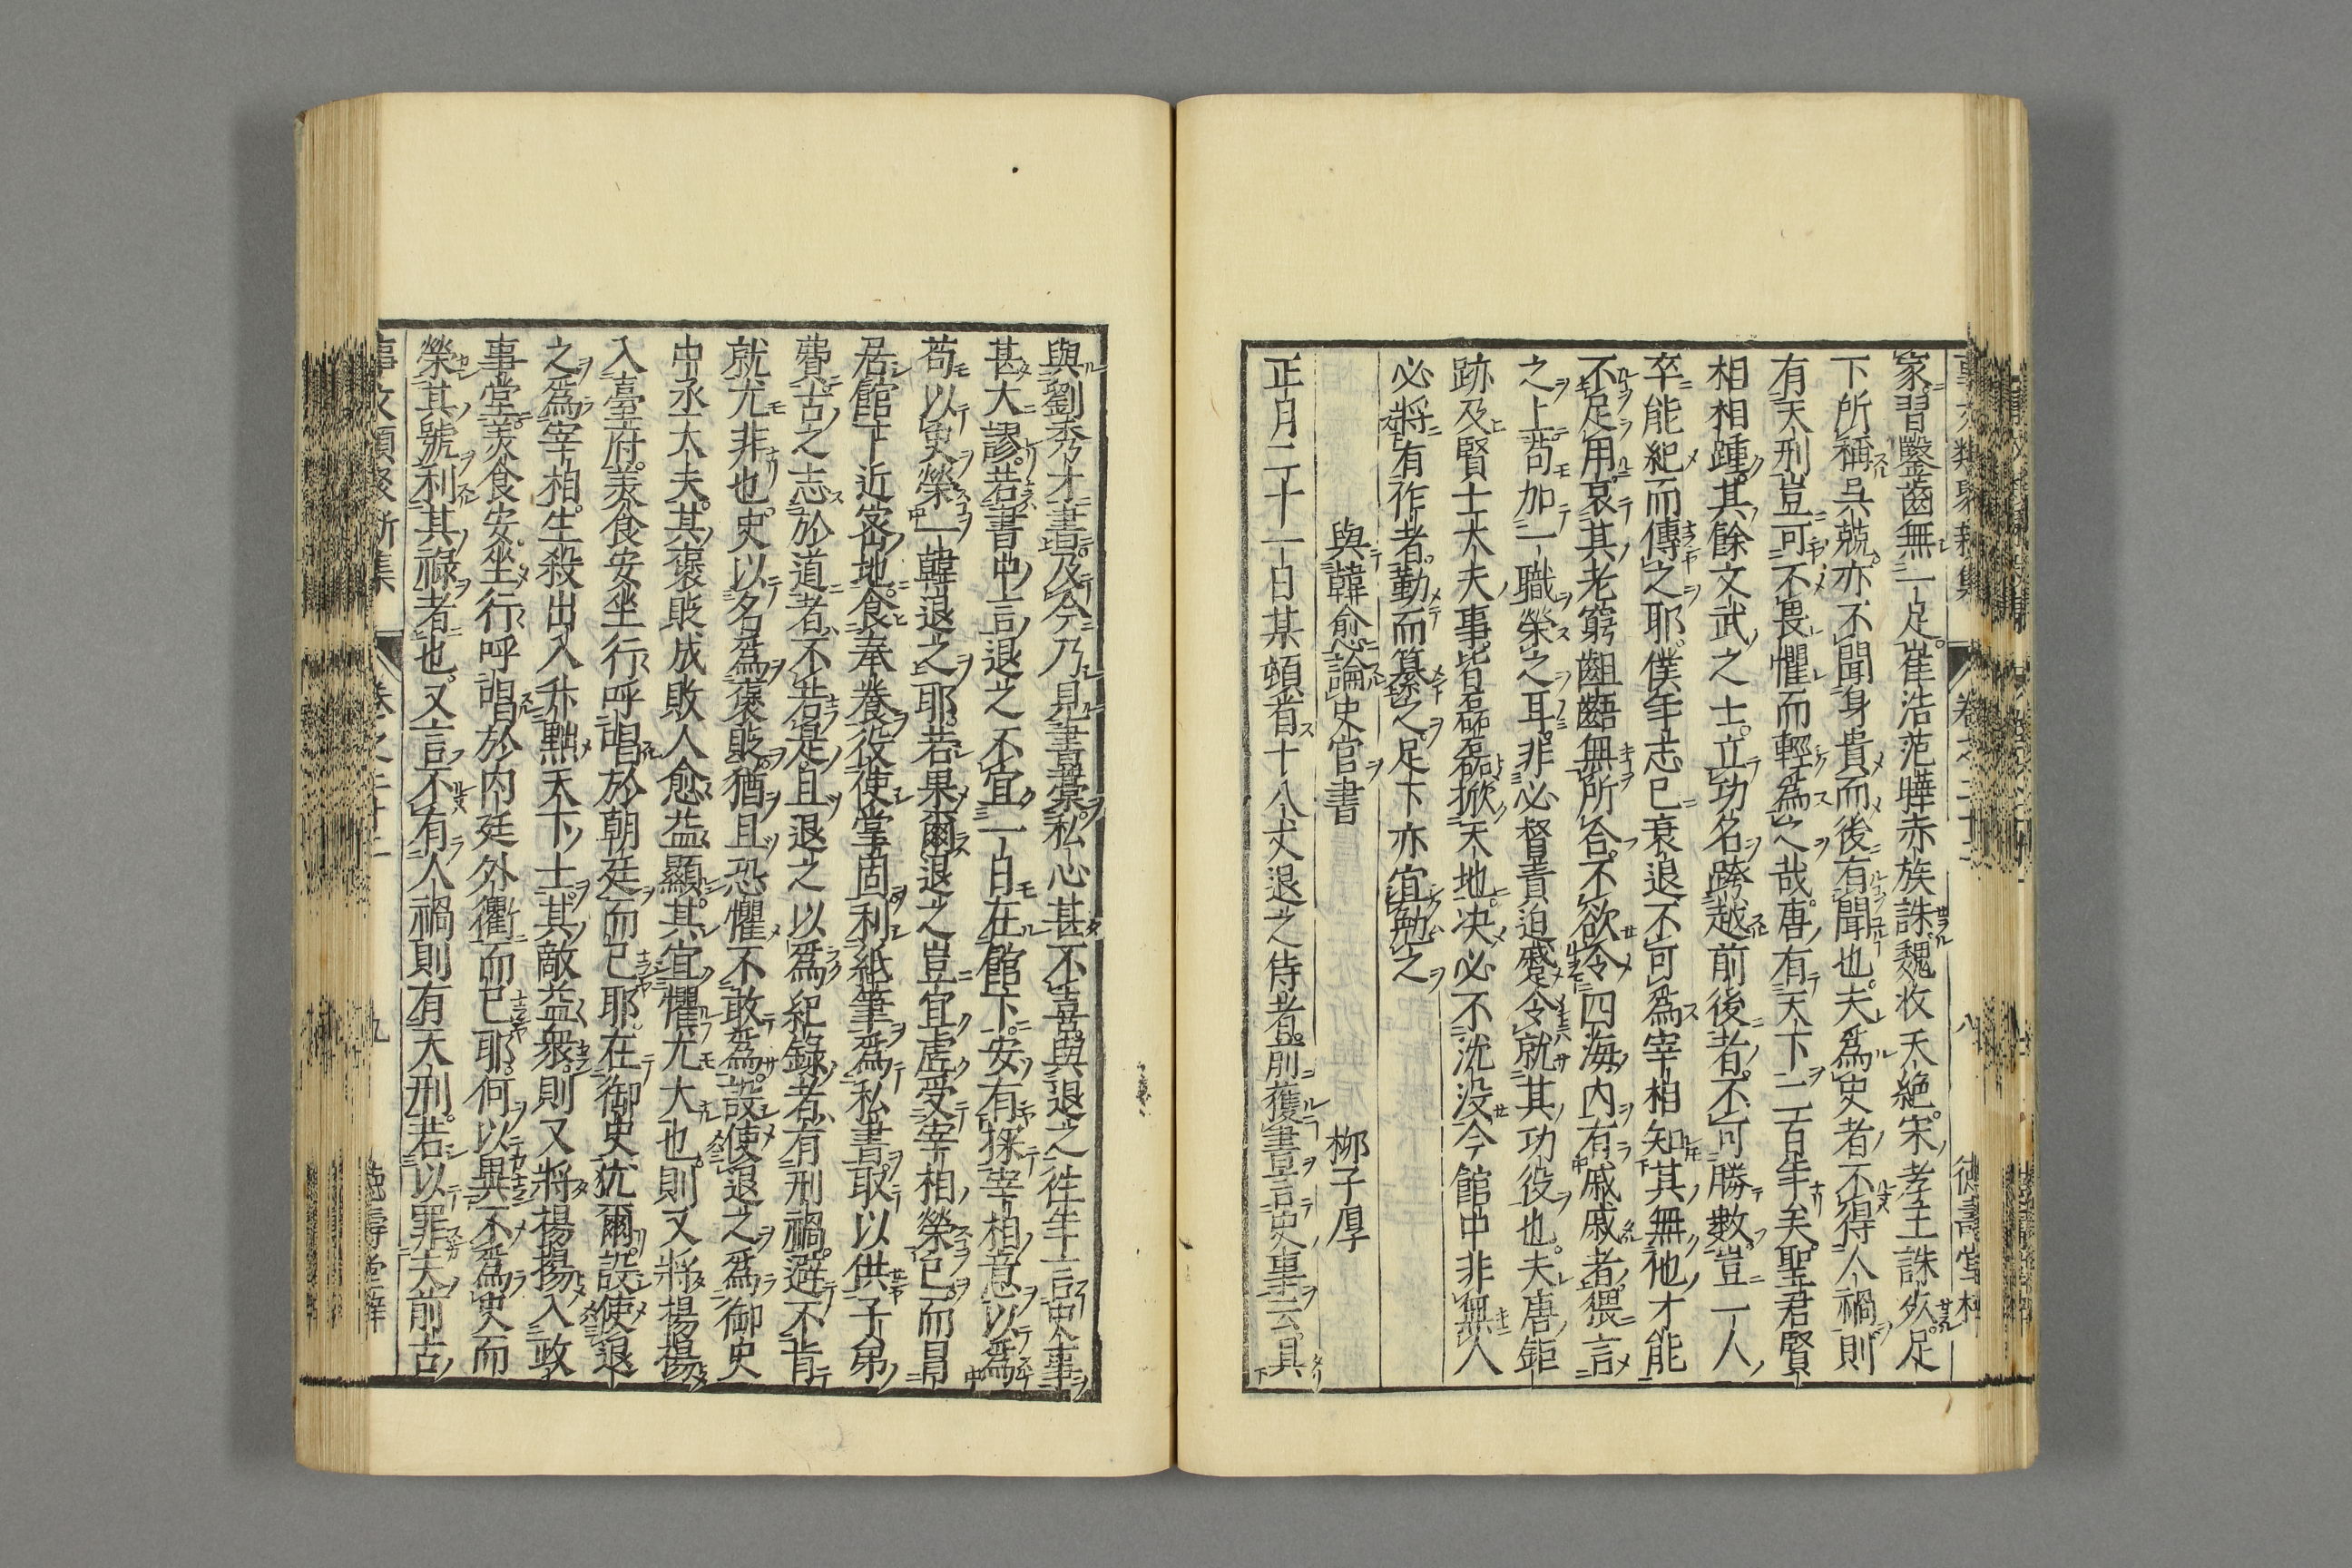 家習鑿齒無一足崔浩范曄赤族誅魏收夭絶宋孝王誅死足
下所稱呉兢亦不聞身貴而後有聞也夫爲史者不得人禍則
有天刑豈可不畏懼而輕爲之哉唐有天下二百年矣聖君賢
相相踵其餘文武之士立功名跨越前後者不可勝數豈一人
卒能紀而傳之耶僕年志已衰退不可爲宰相知其無他才能
不足用哀其老窮齟齬無所合不欲令四海内有戚戚者猥言
之上苟加一職榮之耳非必督責迫蹙令就其功役也夫唐鉅
跡及賢士大夫事皆磊磊掀天地决必不沈没今館中非無人
必將有作者勤而纂之足下亦宜勉之
與韓愈論史官書　柳子厚
正月二十一日某頓首十八丈退之侍者前獲書言史事云具
與劉秀才書及今乃見書藁私心甚不喜與退之徃年言史事
甚大謬若書中言退之不宜一日在館下安有探宰相意以爲
苟以史榮一韓退之耶若果爾退之豈宜虚受宰相榮已而冒
居館下近密地食奉養役使掌固利紙筆爲私書取以供子弟
費古之志於道者不若是且退之以爲紀錄者有刑禍避不肯
就尤非也史以名爲褒貶猶且恐懼不敢爲設使退之爲御史
中丞大夫其褒貶成敗人愈益顯其宜懼尤大也則又將揚揚
入臺府美食安坐行呼唱於朝廷而已耶在御史犹爾設使退
之爲宰相生殺出入升黜天下士其敵益衆則又將揚揚入政
事堂美食安坐行呼唱於内廷外衢而已耶何以異不爲史而
榮其號利其祿者也又言不有人禍則有天刑若以罪夫前古